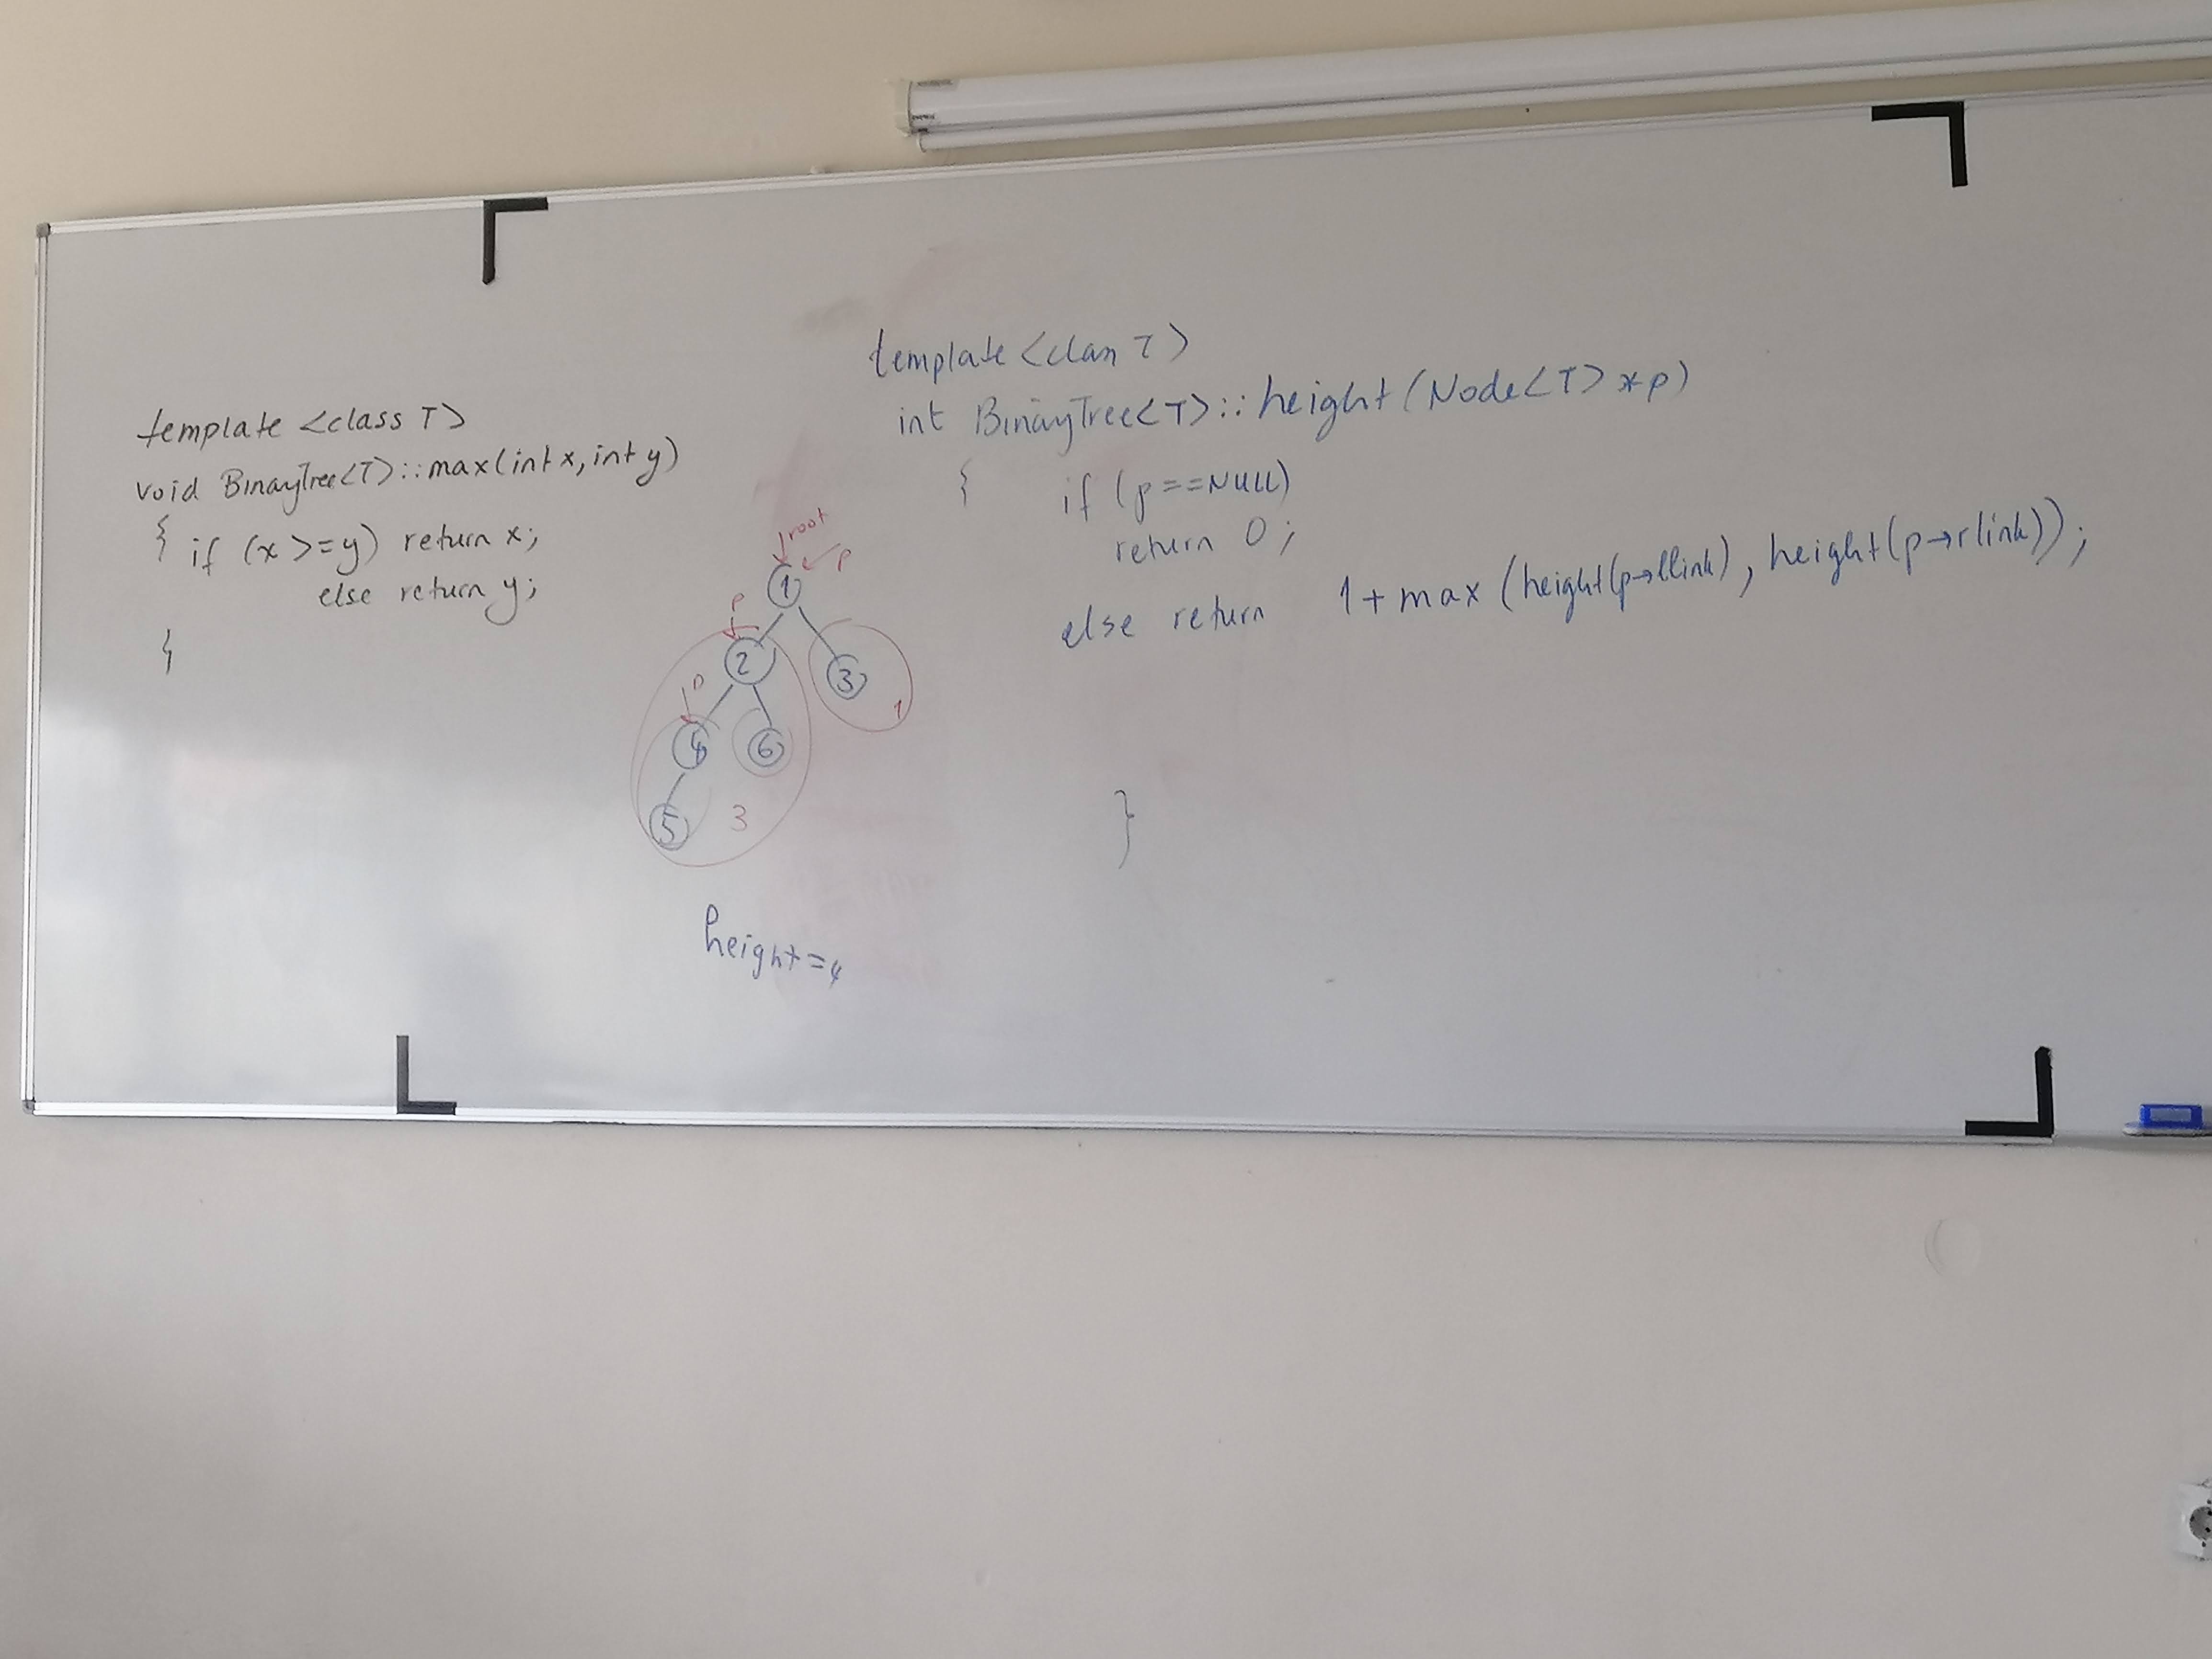 template <class T>
void BinayTree<T>::max(int x, int y)
{ if (x >= y) return x;
else return y;
}
root
p
1
p
2
3
1
p
4
6
5
3
height=4
template <class T>
int BinayTree<T>::height(Node<T> *p)
{ if (p==NULL)
return 0;
else return 1+max(height(p→llink), height(p→rlink));
}